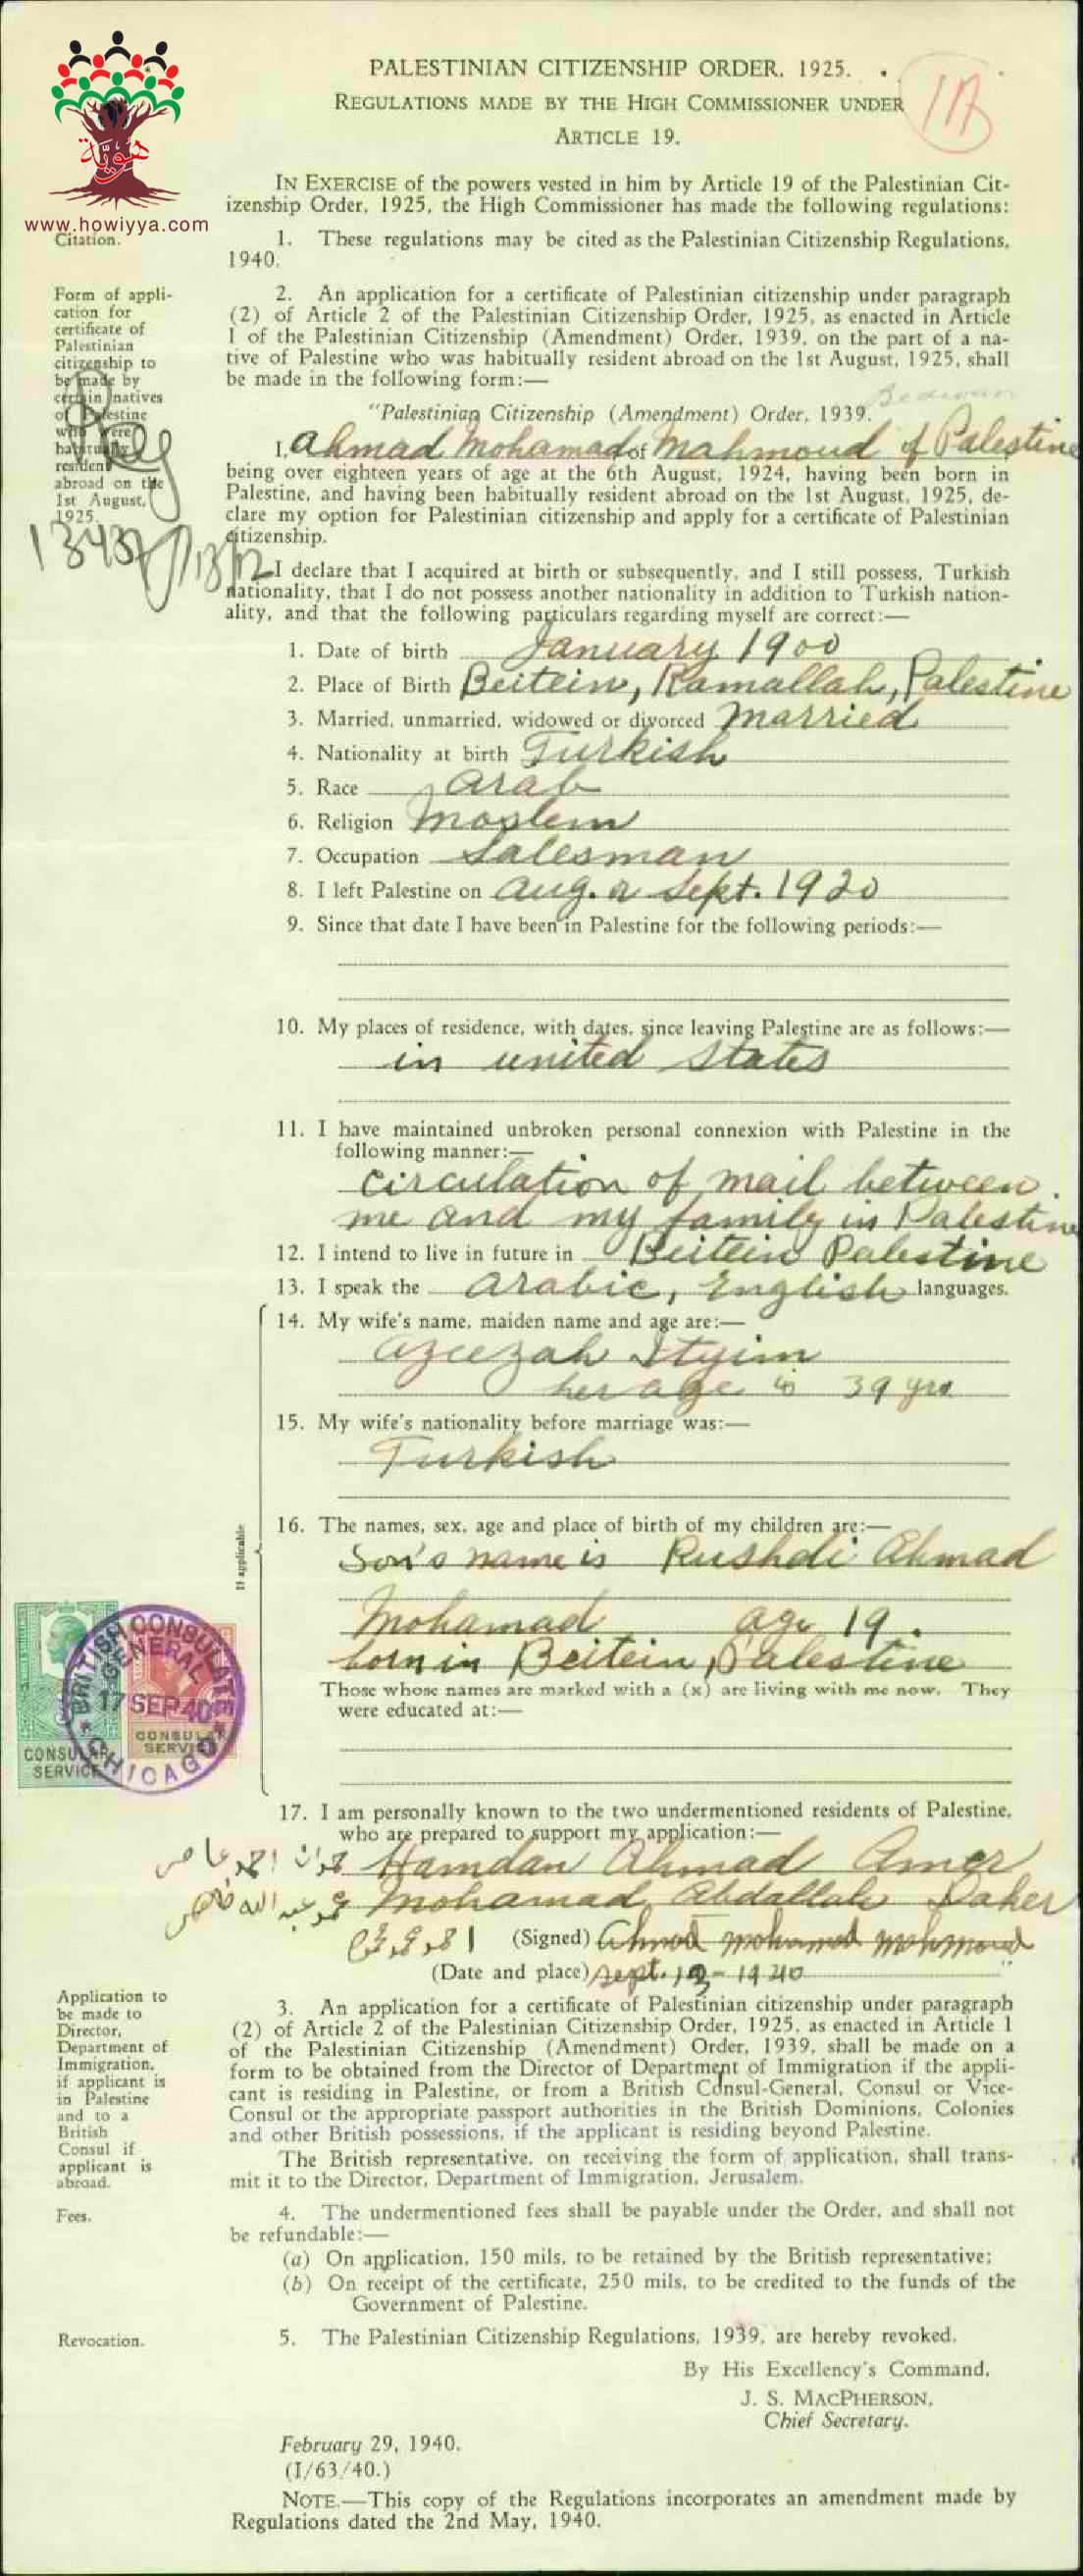 هويّة
www.howiyya.com
PALESTINIAN CITIZENSHIP ORDER, 1925.
REGULATIONS MADE BY THE HIGH COMMISSIONER UNDER
ARTICLE 19.
IN EXERCISE of the powers vested in him by Article 19 of the Palestinian Cit-
izenship Order, 1925, the High Commissioner has made the following regulations:
Citation.
1. These regulations may be cited as the Palestinian Citizenship Regulations,
1940.
Form of appli-
cation for
certificate of
Palestinian
citizenship to
be made by
certain natives
of Palestine
who were
habitually
resident
abroad on the
1st August,
1925.
2. An application for a certificate of Palestinian citizenship under paragraph
(2) of Article 2 of the Palestinian Citizenship Order, 1925, as enacted in Article
1 of the Palestinian Citizenship (Amendment) Order, 1939, on the part of a na-
tive of Palestine who was habitually resident abroad on the 1st August, 1925, shall
be made in the following form:—
"Palestinian Citizenship (Amendment) Order, 1939.
I, Ahmad Mohamad of Mahmoud of Palestine
being over eighteen years of age at the 6th August, 1924, having been born in
Palestine, and having been habitually resident abroad on the 1st August, 1925, de-
clare my option for Palestinian citizenship and apply for a certificate of Palestinian
citizenship.
I declare that I acquired at birth or subsequently, and I still possess, Turkish
nationality, that I do not possess another nationality in addition to Turkish nation-
ality, and that the following particulars regarding myself are correct:—
1. Date of birth January 1900
2. Place of Birth Beitein, Ramallah, Palestine
3. Married, unmarried, widowed or divorced Married
4. Nationality at birth Turkish
5. Race Arab
6. Religion Moslem
7. Occupation Salesman
8. I left Palestine on Aug. or Sept. 1920
9. Since that date I have been in Palestine for the following periods:—
10. My places of residence, with dates, since leaving Palestine are as follows:—
in united states
11. I have maintained unbroken personal connexion with Palestine in the
following manner:—
circulation of mail between
me and my family in Palestine
12. I intend to live in future in Beitein Palestine
13. I speak the Arabic, English languages.
If applicable
14. My wife's name, maiden name and age are:—
Azeezah Ityim
her age is 39 yrs
15. My wife's nationality before marriage was:—
Turkish
16. The names, sex, age and place of birth of my children are:—
Son's name is Rushdi Ahmad
Mohamad age 19.
born in Beitein, Palestine
Those whose names are marked with a (x) are living with me now. They
were educated at:—
BRITISH CONSULATE GENERAL
17 SEP 40
CHICAGO
CONSULAR
SERVICE
CONSULAR
SERVICE
17. I am personally known to the two undermentioned residents of Palestine,
who are prepared to support my application:—
Hamdan Ahmad Amer
Mohamad Abdallah Daher
(Signed) Ahmad mohamad mahmoud
(Date and place) Sept. 12 - 1940 "
Application to
be made to
Director,
Department of
Immigration,
if applicant is
in Palestine
and to a
British
Consul if
applicant is
abroad.
3. An application for a certificate of Palestinian citizenship under paragraph
(2) of Article 2 of the Palestinian Citizenship Order, 1925, as enacted in Article 1
of the Palestinian Citizenship (Amendment) Order, 1939, shall be made on a
form to be obtained from the Director of Department of Immigration if the appli-
cant is residing in Palestine, or from a British Consul-General, Consul or Vice-
Consul or the appropriate passport authorities in the British Dominions, Colonies
and other British possessions, if the applicant is residing beyond Palestine.
The British representative, on receiving the form of application, shall trans-
mit it to the Director, Department of Immigration, Jerusalem.
Fees.
4. The undermentioned fees shall be payable under the Order, and shall not
be refundable:—
(a) On application, 150 mils, to be retained by the British representative;
(b) On receipt of the certificate, 250 mils, to be credited to the funds of the
Government of Palestine.
Revocation.
5. The Palestinian Citizenship Regulations, 1939, are hereby revoked.
By His Excellency's Command,
J. S. MACPHERSON,
Chief Secretary.
February 29, 1940.
(I/63/40.)
NOTE.—This copy of the Regulations incorporates an amendment made by
Regulations dated the 2nd May, 1940.